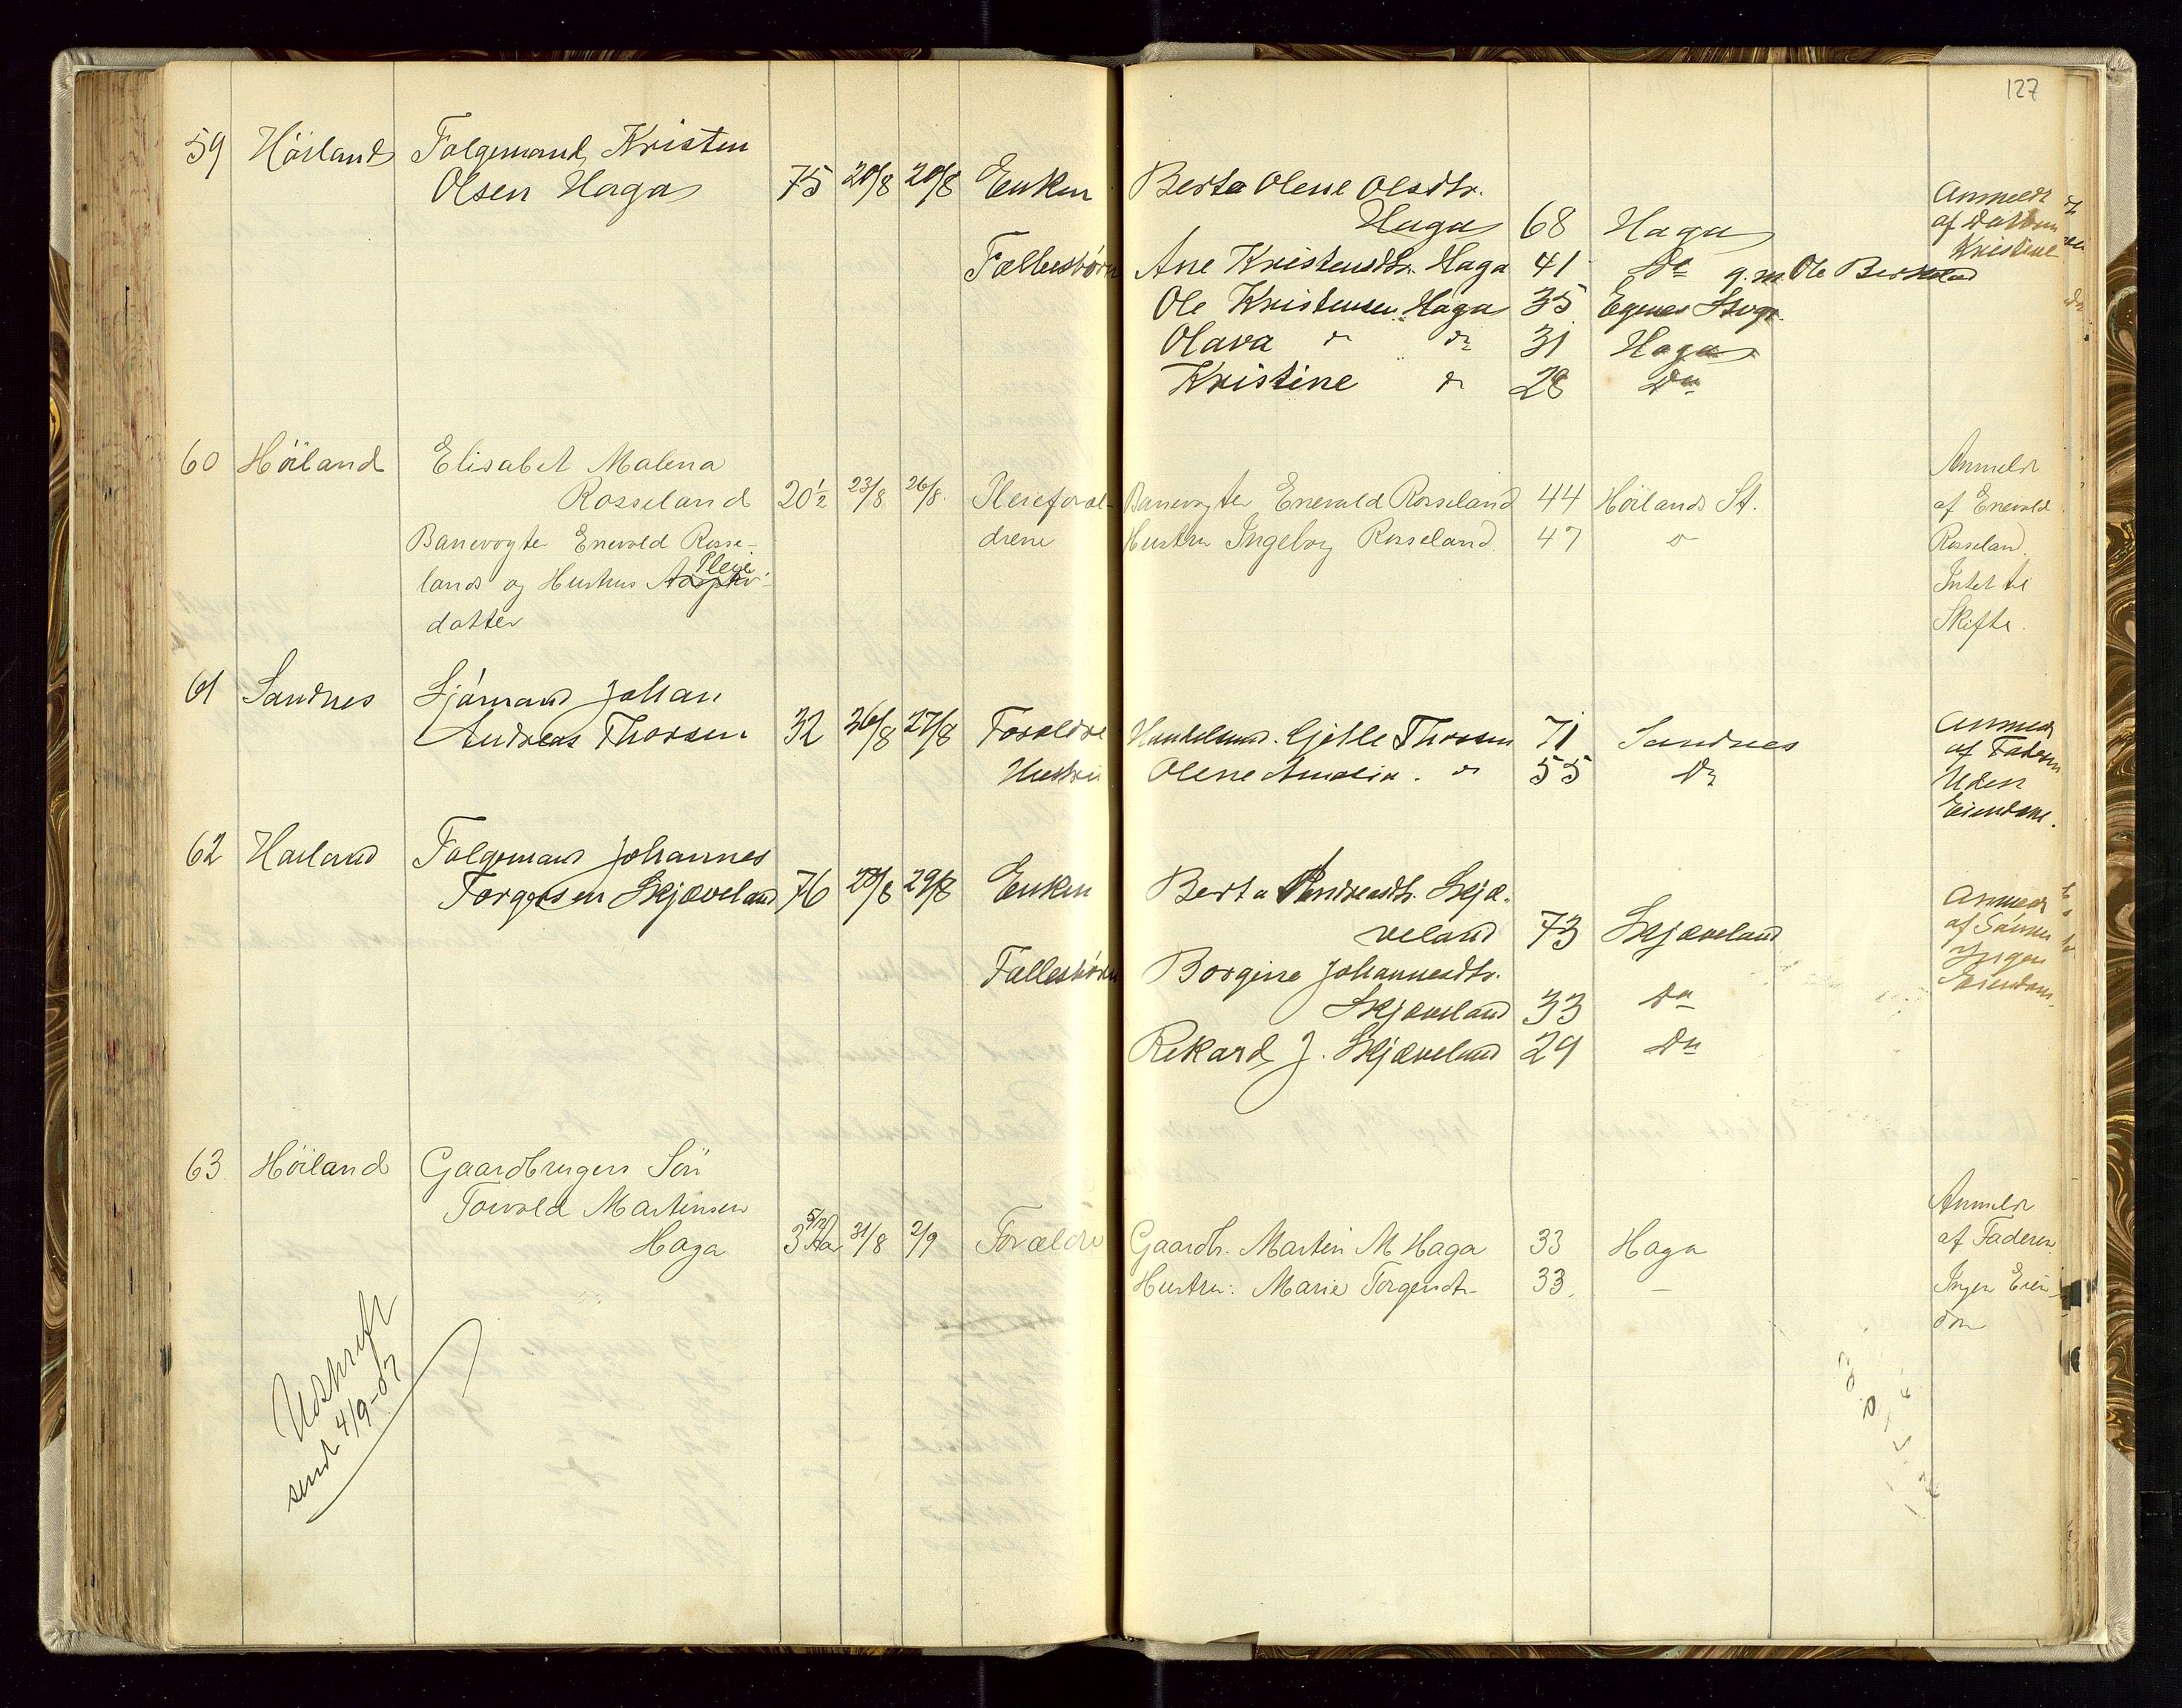 127
59 Höiland Folgemand Kristen
Olsen Haga 75 20/8 20/8 Enken Berta Olene Olsdtr.
Haga 68 Haga Anmeldt
af Datteren
Kristine
Fællesbörn Ane Kristensdtr. Haga 41 Do g. m. Ole
Ole Kristensen Haga 35
Olava do do 31 Haga
Kristine do 28 Do
60 Höiland Elisabet Malena
Rosseland 20½ 23/8 26/8. Pleieforæl- Banevogter Enevald Rosseland 44 Höilands St.
Banevogter Enevold Rosse- drene Hustru Ingeborg Rosseland 47 do
Pleie
lands og Hustrus
datter
Anmeldt
af Enevold
Rosseland.
Intet til
Skifte.
61 Sandnes Sjömand Johan
Andreas Thorsen 32 26/8 27/8 Forældre Handelsmd. Gjille Thorsen 71 Sandnes
Hustru Olene Amalia do 55 Do
Anmeldt
af Faderen
Uden
Eiendom.
62 Höiland Folgemand Johannes
Torgersen Skjæveland 76 29/8 Enken Berta Andreasdtr. Skjæ-
veland 73 Skjæveland
Fællesbörn Borgine Johannesdtr.
Skjæveland 33 Do
Rekard J. Skjæveland 29 Do
Anmeldt
af Sönnen
Ingen
Eiendom.
63. Höiland Gaardbrugers Sön
Torvald Martinsen
Haga 3 5/12 Aar 31/8 2/9 Forældre Gaardbr. Martin M Haga 33 Haga
Hustru: Marie Torgersdtr 33. —
Anmeldt
af Faderen
Ingen Eien-
dom
Udskrift
sendt 4/9-07